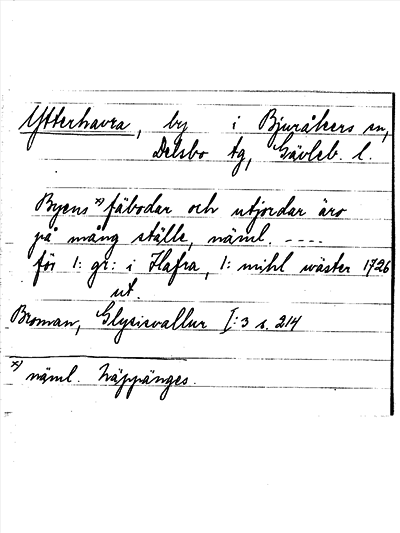 Ytterhavra, by i Bjuråkers sn,
Delsbo tg, Gävleb. l.
Byens x) fäbodar och utjordar äro
på mång ställe, näml. ----
för 1: gr: i Hafra, 1: mihl wäster 1726
ut.
Broman, Glysisvallur I:3 s. 214
x) näml. Näppänges.